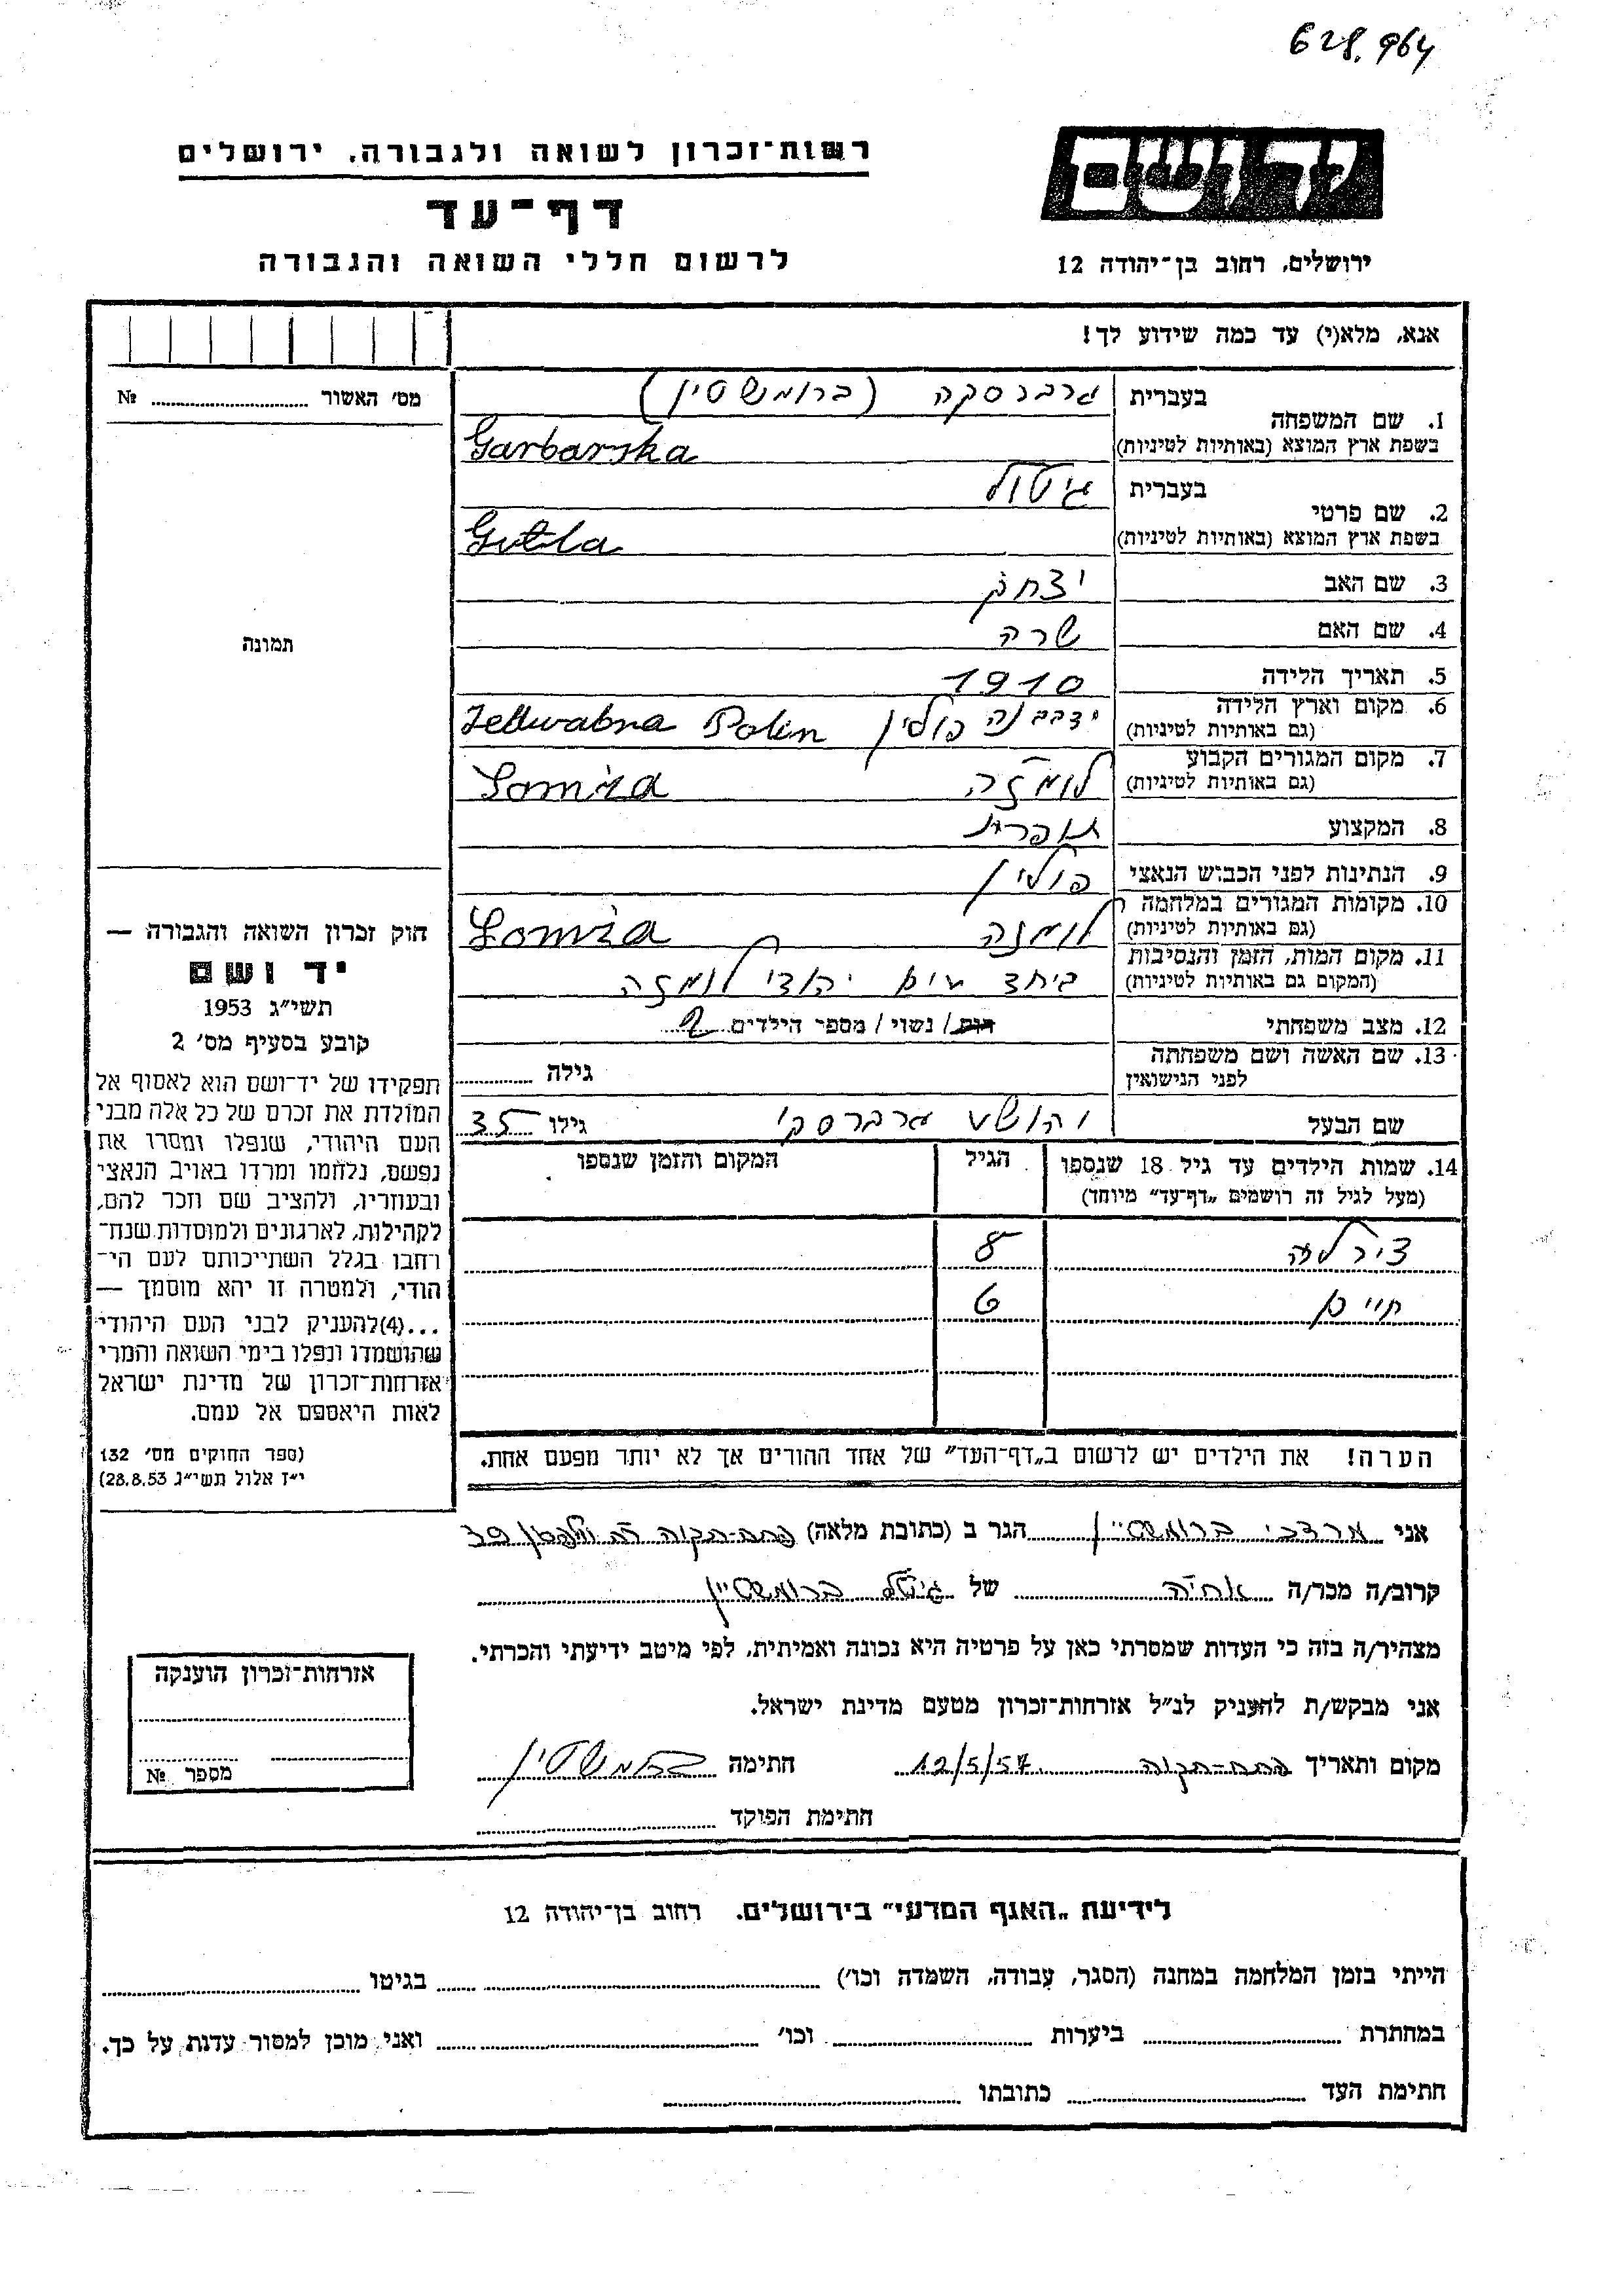 628.964
רשות־זכרון לשואה ולגבורה, ירושלים
יד ושם
דף־עד
לרשום חללי השואה והגבורה
ירושלים, רחוב בן־יהודה 12
אנא, מלא(י) עד כמה שידוע לך!
מס׳ האשור № ..........
1. שם המשפחה בעברית גרברסקה (ברומשטין)
בשפת ארץ המוצא (באותיות לטיניות) Garbarska
2. שם פרטי בעברית גיטול
בשפת ארץ המוצא (באותיות לטיניות) Gutla
3. שם האב יצחק
4. שם האם שרה
5. תאריך הלידה 1910
6. מקום וארץ הלידה (גם באותיות לטיניות) ידבבנה פולין Jedwabna Polin
7. מקום המגורים הקבוע (גם באותיות לטיניות) לומזה Łomża
8. המקצוע תופרת
9. הנתינות לפני הכבוש הנאצי פולין
10. מקומות המגורים במלחמה (גם באותיות לטיניות) לומזה Łomża
11. מקום המות, הזמן והנסיבות (המקום גם באותיות לטיניות) ביחד עים יהודי לומזה
12. מצב משפחתי רוק/ נשוי/ מספר הילדים 2
13. שם האשה ושם משפחתה לפני הנישואין גילה ..........
שם הבעל יהושע גרברסקי גילו 35
14. שמות הילדים עד גיל 18 שנספו (מעל לגיל זה רושמים „דף־עד״ מיוחד) הגיל המקום והזמן שנספו
צירלה 8
חיים 6
תמונה
חוק זכרון השואה והגבורה —
יד ושם
תשי״ג 1953
קובע בסעיף מס׳ 2
תפקידו של יד־ושם הוא לאסוף אל
המולדת את זכרם של כל אלה מבני
העם היהודי, שנפלו ומסרו את
נפשם, נלחמו ומרדו באויב הנאצי
ובעוזריו, ולהציב שם וזכר להם,
לקהילות, לארגונים ולמוסדות שנח־
רחבו בגלל השתייכותם לעם הי־
הודי, ולמטרה זו יהא מוסמך —
...(4)להעניק לבני העם היהודי
שהושמדו ונפלו בימי השואה והמרי
אזרחות־זכרון של מדינת ישראל
לאות היאספם אל עמם.
(ספר החוקים מס׳ 132
י״ז אלול תשי״ג 28.8.53)
הערה! את הילדים יש לרשום ב„דף־העד״ של אחד ההורים אך לא יותר מפעם אחת.
אני מרדכי ברומשטיין הגר ב (כתובת מלאה) פתח-תקוה רח 39
קרוב/ה מכר/ה אחיה של גיטל ברומשטיין
מצהיר/ה בזה כי העדות שמסרתי כאן על פרטיה היא נכונה ואמיתית, לפי מיטב ידיעתי והכרתי.
אני מבקש/ת להעניק לנ״ל אזרחות־זכרון מטעם מדינת ישראל.
מקום ותאריך פתח-תקוה 12/5/57 חתימה ברומשטין
חתימת הפוקד ..........
אזרחות־זכרון הוענקה
מספר №
לידיעת „האגף המדעי״ בירושלים. רחוב בן־יהודה 12
הייתי בזמן המלחמה במחנה (הסגר, עבודה, השמדה וכו׳) .......... בגיטו ..........
במחתרת .......... ביערות .......... וכו׳ .......... ואני מוכן למסור עדות על כך.
חתימת העד .......... כתובתו ..........